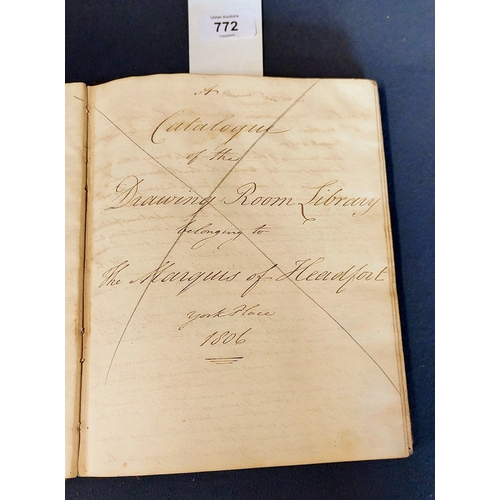 772
A
Catalogue
of the
Drawing Room Library
belonging to
The Marquis of Headfort
York Place
1806